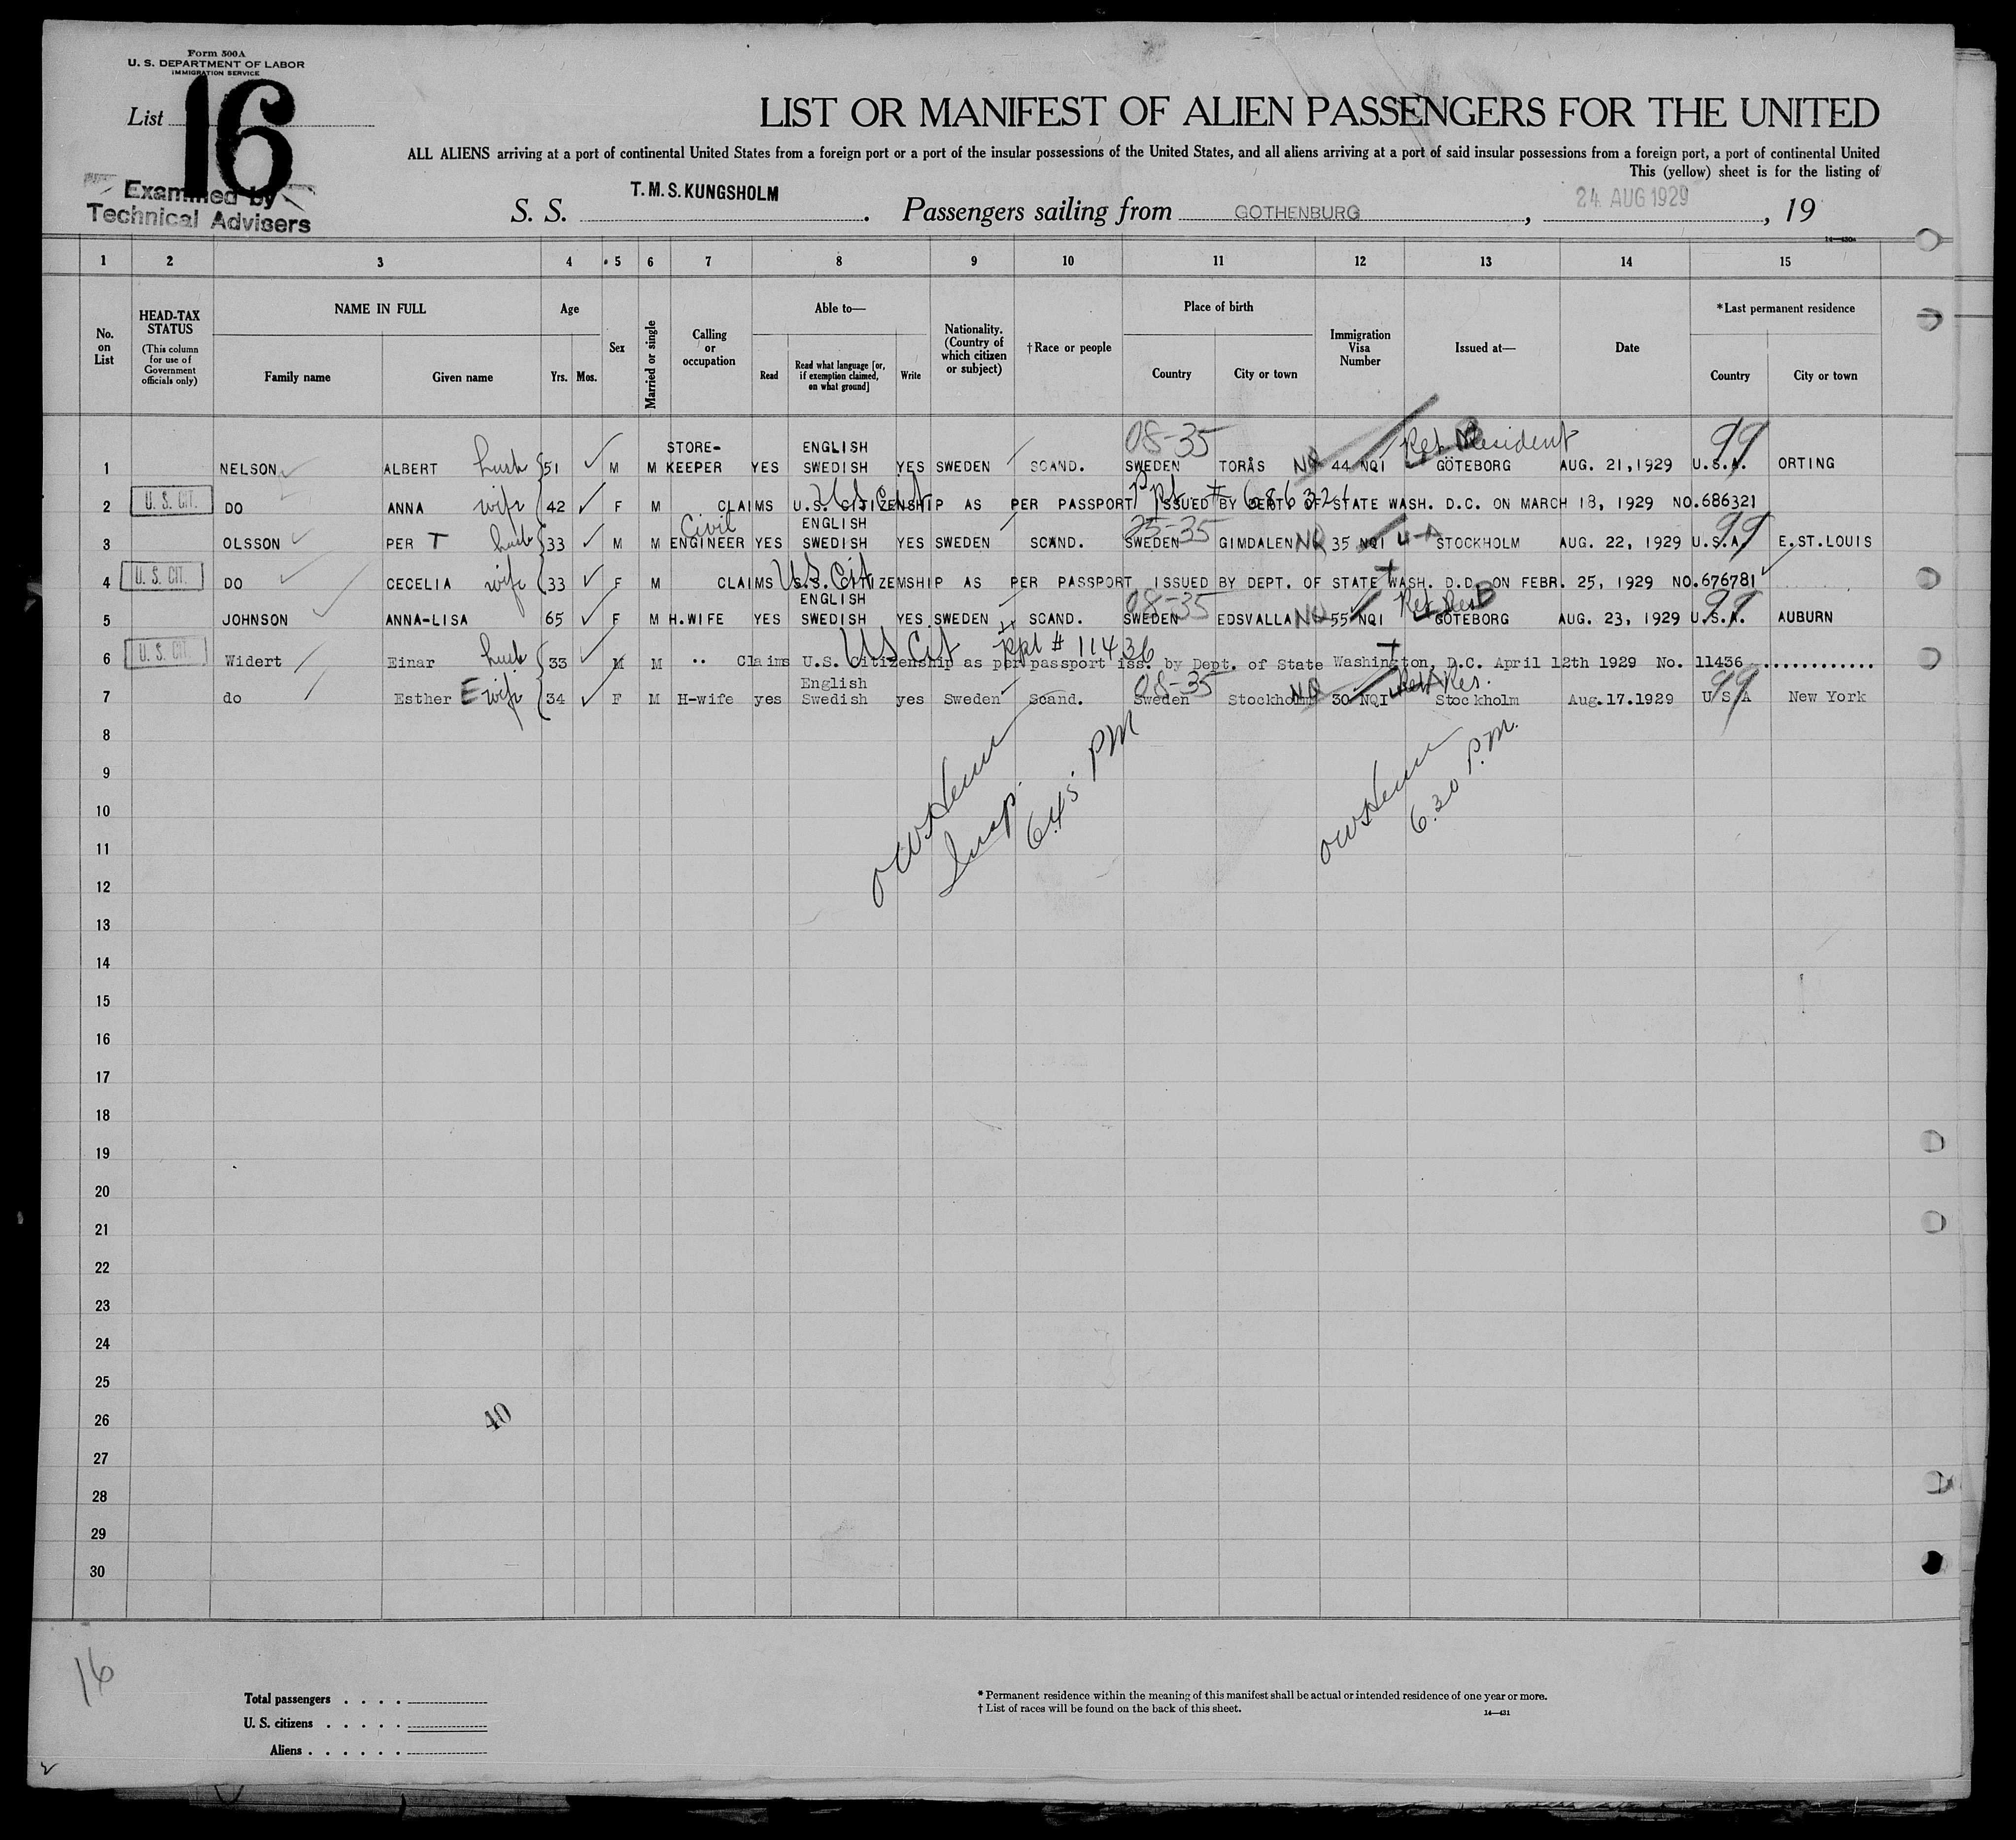 Form 500A
U. S. DEPARTMENT OF LABOR
IMMIGRATION SERVICE
List 16
Examined by
Technical Advisers
LIST OR MANIFEST OF ALIEN PASSENGERS FOR THE UNITED
ALL ALIENS arriving at a port of continental United States from a foreign port or a port of the insular possessions of the United States, and all aliens arriving at a port of said insular possessions from a foreign port, a port of continental United
This (yellow) sheet is for the listing of
S. S. T.M.S.KUNGSHOLM . Passengers sailing from GOTHENBURG , 24 AUG 1929 , 19
1 2 3 4 5 6 7 8 9 10 11 12 13 14 15
No. on List
HEAD-TAX STATUS (This column for use of Government officials only)
NAME IN FULL Family name Given name
Age Yrs. Mos.
Sex
Married or single
Calling or occupation
Able to— Read Read what language [or, if exemption claimed, on what ground] Write
Nationality. (Country of which citizen or subject)
†Race or people
Place of birth Country City or town
Immigration Visa Number
Issued at—
Date
*Last permanent residence Country City or town
1 NELSON ALBERT husb 51 M M STORE-KEEPER YES ENGLISH SWEDISH YES SWEDEN SCAND. 08-35 SWEDEN TORÅS NQ 44 NQI Ret Resident GÖTEBORG AUG. 21,1929 99 U.S.A. ORTING
2 U. S. CIT. DO ANNA wife 42 F M CLAIMS U.S. CITIZENSHIP AS PER PASSPORT ISSUED BY DEPT. OF STATE WASH. D.C. ON MARCH 18, 1929 NO.686321
US Cit Ppt # 686321
3 OLSSON PER T husb 33 M M Civil ENGINEER YES ENGLISH SWEDISH YES SWEDEN SCAND. 25-35 SWEDEN GIMDALEN NQ 35 NQI 4-A STOCKHOLM AUG. 22, 1929 99 U.S.A. E.ST.LOUIS
4 U. S. CIT. DO CECELIA wife 33 F M CLAIMS U.S. CITIZEMSHIP AS PER PASSPORT ISSUED BY DEPT. OF STATE WASH. D.D. ON FEBR. 25, 1929 NO.676781
US Cit
5 JOHNSON ANNA-LISA 65 F M H.WIFE YES ENGLISH SWEDISH YES SWEDEN SCAND. 08-35 SWEDEN EDSVALLA NQ 55 NQI Ret Res B GÖTEBORG AUG. 23, 1929 99 U.S.A. AUBURN
6 U. S. CIT. Widert Einar husb 33 M M " Claims U.S. Citizenship as per passport iss. by Dept. of State Washington, D.C. April 12th 1929 No. 11436.............
US Cit ppt # 11436
7 do Esther E wife 34 F M H-wife yes English Swedish yes Sweden Scand. 08-35 Sweden Stockholm NQ 30 NQI Ret Res. Stockholm Aug.17.1929 99 U S A New York
8
9
10
11
12
13
14
15
16
17
18
19
20
21
22
23
24
25
26
27
28
29
30
Insp.
6.45 PM
6.30 P.M.
40
16
Total passengers . . . .
U. S. citizens . . . . .
Aliens . . . . . .
* Permanent residence within the meaning of this manifest shall be actual or intended residence of one year or more.
† List of races will be found on the back of this sheet.
14—431